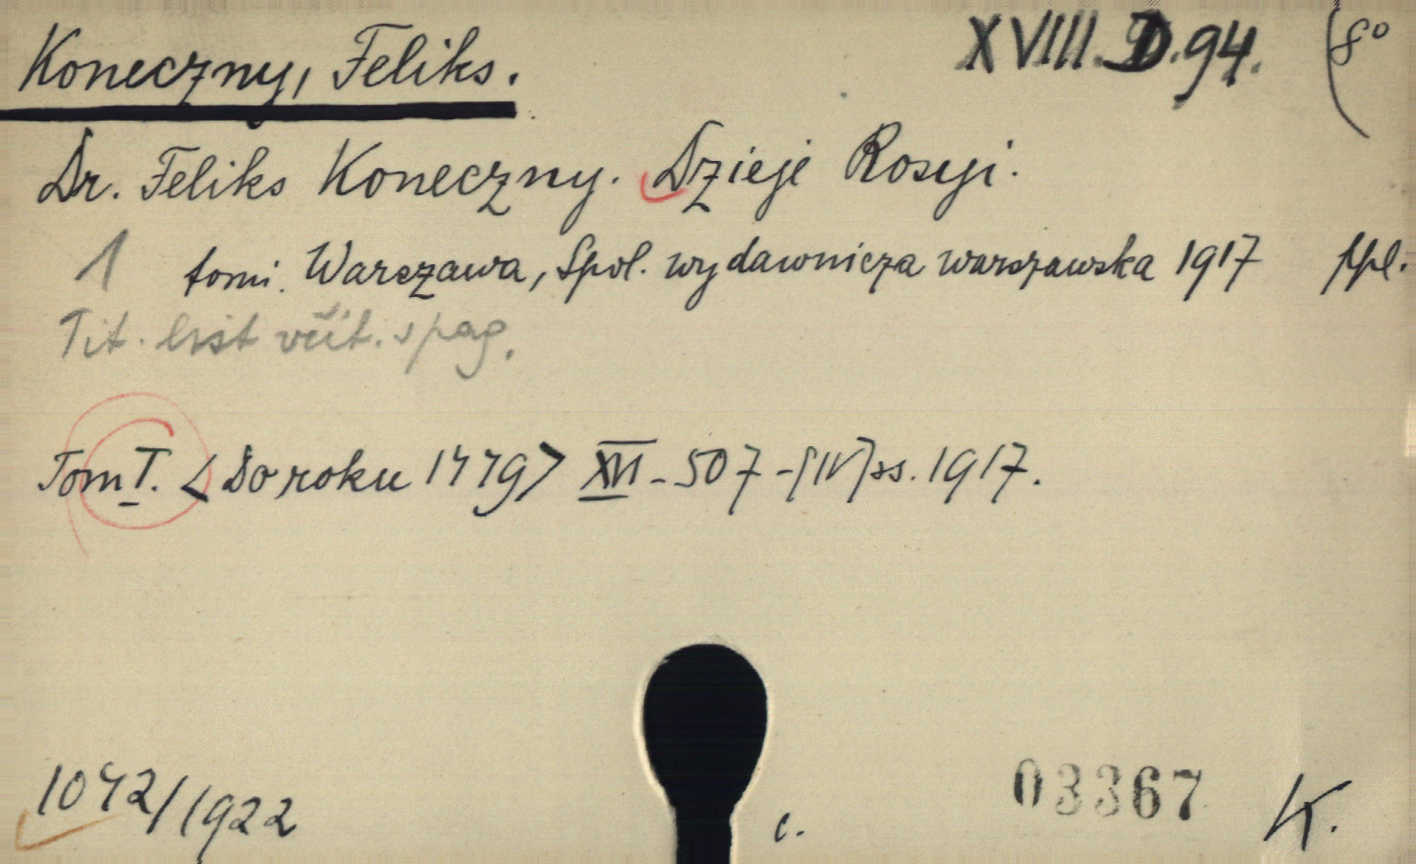 Koneczny, Feliks.
XVIII. D. 94.
8°
Dr. Feliks Koneczny. Dzieje Rosyi.
1 tomi. Warszawa, Spol. wydawnicza warszawska 1917 ppl.
Tit. list včít. s pag.
Tom I. <Do roku 1449> XVI - 507 - [IV] ss. 1917.
1042/1922
c.
03367
K.